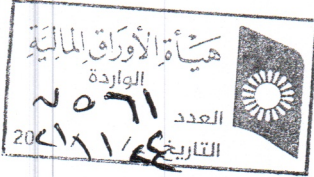 هيأة الأوراق المالية
الواردة
العدد ٧٥٦١
التاريخ ٢٤/١١/20٢١